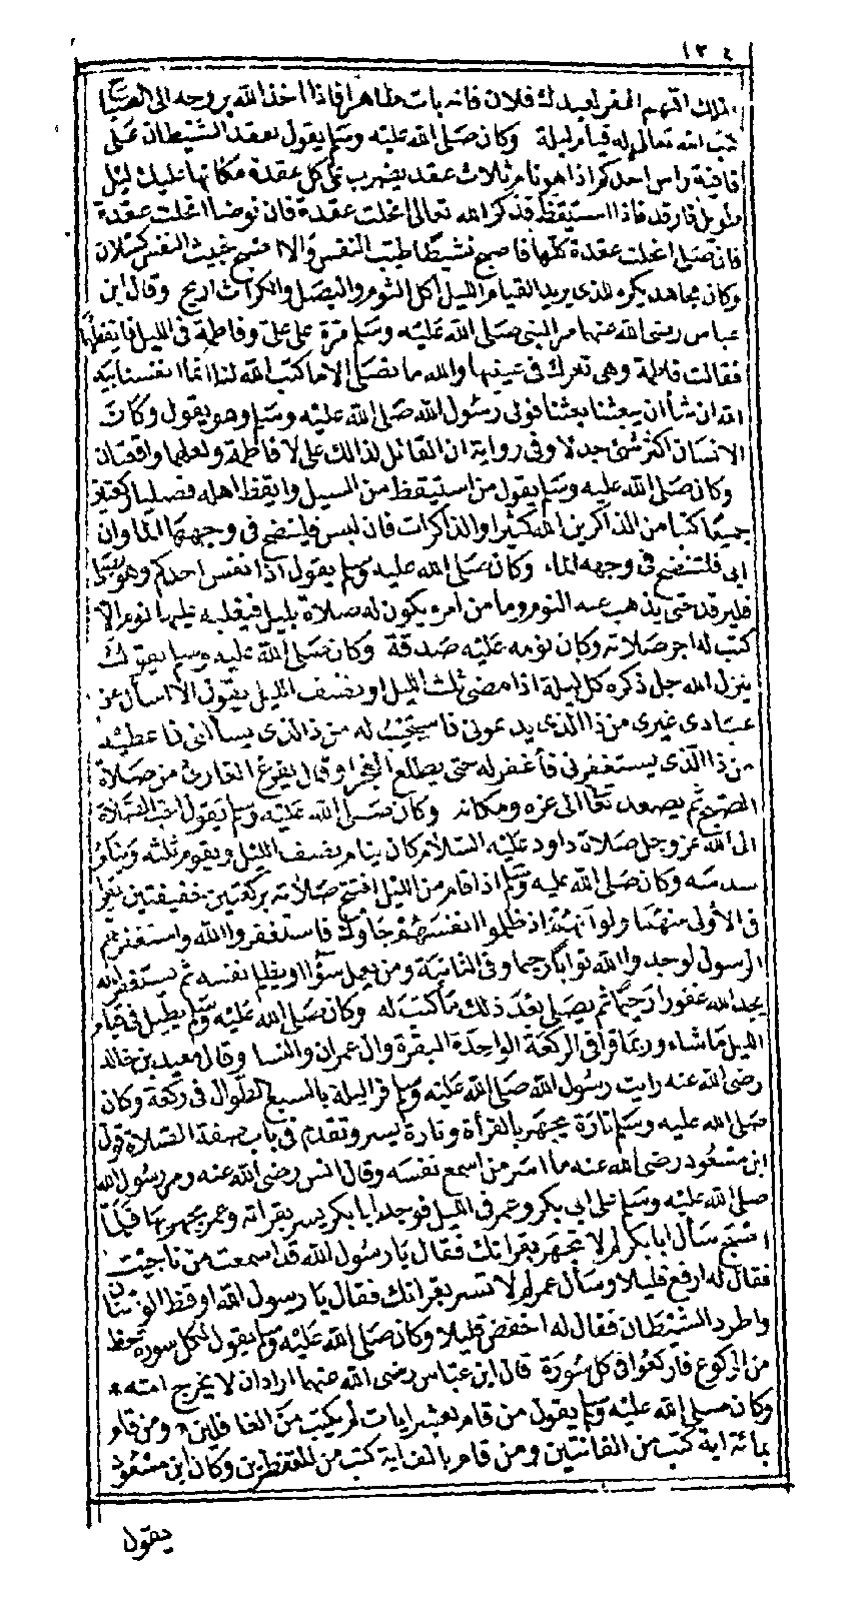 ١٣٤
الملك اللهم اغفر لعبدك فلان فانه بات طاهرا فاذا اخذ الله بروحه الى الصباح
كتب الله تعالى له قيام ليلة وكان صلى الله عليه وسلم يقول يعقد الشيطان على
قافية راس احدكم اذا هو نام ثلاث عقد يضرب على كل عقدة مكانها عليك ليل
طويل فارقد فاذا استيقظ فذكر الله تعالى انحلت عقدة فان توضا انحلت عقدة
فان صلى انحلت عقدة كلها فاصبح نشيطا طيب النفس والا اصبح خبيث النفس كسلان
وكان مجاهد يكره للذى يريد القيام من الليل اكل الثوم والبصل والكراث اريح وقال ابن
عباس رضى الله عنهما مر النبى صلى الله عليه وسلم مرة على على وفاطمة فى الليل فايقظهما
فقالت فاطمة وهى تعرك فى عينيها والله ما نصلى الا ما كتب الله لنا انما انفسنا بيد
الله ان شا ان يبعثنا بعثنا فولى رسول الله صلى الله عليه وسلم وهو يقول وكان
الانسان اكثر شئ جدلا وفى رواية ان القائل لذالك على لا فاطمة ولعلهما واقعتان
وكان صلى الله عليه وسلم يقول من استيقظ من الليل وايقظ اهله فصليا ركعتين
جميعا كتبا من الذاكرين الله كثيرا والذاكرات فان لبس فلينضح فى وجهها الماء وان
ابى فلتنضح فى وجهه الماء وكان صلى الله عليه وسلم يقول اذا نعس احدكم وهو يصلى
فليرقد حتى يذهب عنه النوم وما من امرء يكون له صلاة بليل فيغلبه عليها نوم الا
كتب له اجر صلاته وكان نومه عليه صدقة وكان صلى الله عليه وسلم يقول
ينزل الله جل ذكره كل ليلة اذا مضى ثلث الليل او نصف الليل يقول لا اسأل عن
عبادى غيرى من ذا الذى يدعونى فاستجيب له من ذا الذى يسألنى فاعطيه
من ذا الذى يستغفرنى فأغفر له حتى يطلع الفجر او قال يفرغ القارئ من صلاة
الصبح ثم يصعد تعالى الى عزه ومكانه وكان صلى الله عليه وسلم يقول احب الصلاة
الى الله عز وجل صلاة داود عليه السلام كان ينام نصف الليل ويقوم ثلثه وينام
سدسه وكان صلى الله عليه وسلم اذا قام من الليل افتتح صلاته بركعتين خفيفتين يقرا
فى الاولى منهما ولو انهم اذ ظلموا انفسهم جاؤك فاستغفروا الله واستغفر لهم
الرسول لوجدوا الله توابا رحيما وفى الثانية ومن يعمل سؤا او يظلم نفسه ثم يستغفر الله
يجد الله غفورا رحيما ثم يصلى بعد ذلك ما كتب له وكان صلى الله عليه وسلم يطيل فى قيام
الليل ما شاء وربما قرا فى الركعة الواحدة البقرة وال عمران والنسا وقال معبد بن خالد
رضى الله عنه رايت رسول الله صلى الله عليه وسلم قرا ليلة بالسبع الطوال فى ركعة وكان
صلى الله عليه وسلم تارة يجهر بالقرأة وتارة يسر وتقدم فى باب صفة الصلاة قول
ابن مسعود رضى الله عنه ما اسر من اسمع نفسه وقال انس رضى الله عنه ومر رسول الله
صلى الله عليه وسلم على ابى بكر وعمر فى الليل فوجد ابا بكر يسر بقراته وعمر يجهر بها فلما
اصبح سأل ابا بكر لم لا تجهر بقرائتك فقال يا رسول الله قد اسمعت من ناجيت
فقال له ارفع قليلا وسأل عمر لم لا تسر بقرائتك فقال يا رسول الله اوقظ الوسنان
واطرد الشيطان فقال له اخفض قليلا وكان صلى الله عليه وسلم يقول لكل سورة حظ
من الركوع فاركعوا فى كل سورة قال ابن عباس رضى الله عنهما اراد ان لا يحرج امته *
وكان صلى الله عليه وسلم يقول من قام بعشر ايات لم يكتب من الغافلين ومن قام
بمائة اية كتب من القانتين ومن قام بالف اية كتب من المقنطرين وكان ابن مسعود
يقول